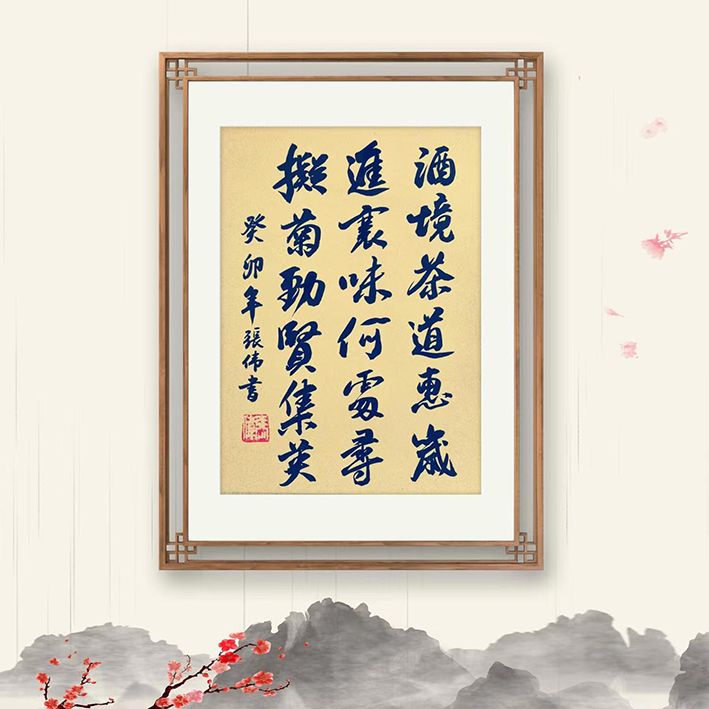 酒境茶道惠歲
進裏味何處尋
擬菊勁賢集英
癸卯年張偉書